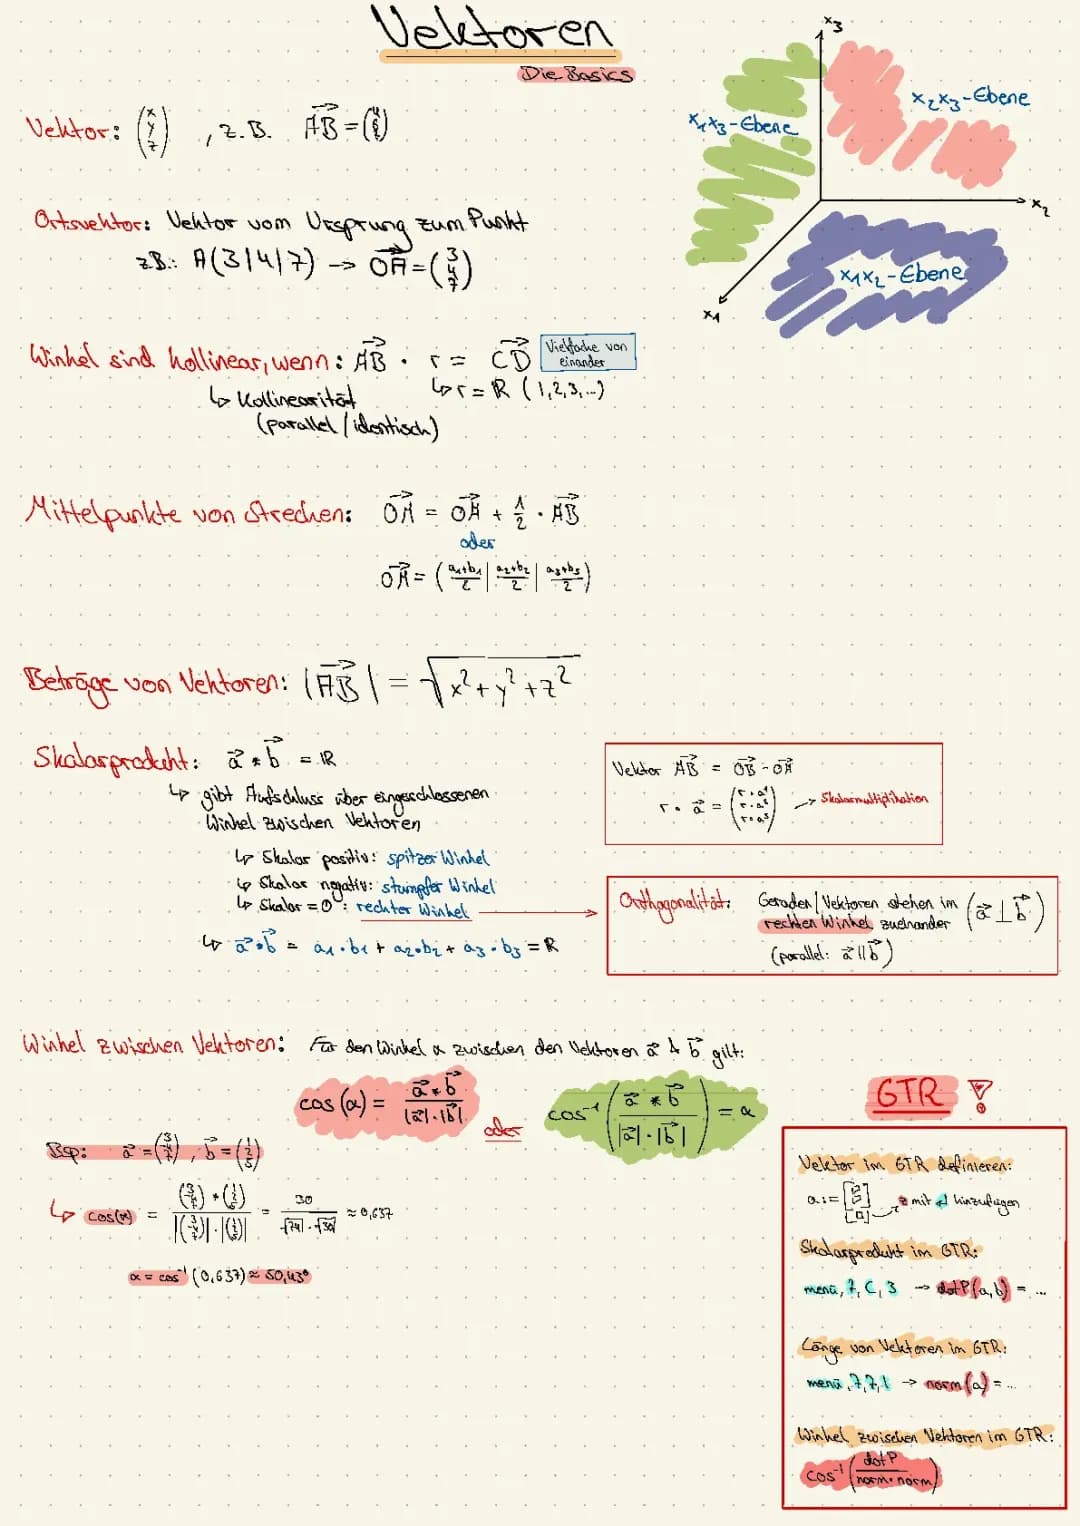 Vektoren
Die Basics
x₃
x₂x₃-Ebene
x₁x₃-Ebene
x₂
x₁x₂-Ebene
x₁
Vektor: (x y z), z.B. AB =
Ortsvektor: Vektor vom Ursprung zum Punkt
z.B.: A(3|4|7) → OA = (3 4 7)
Winkel sind kollinear, wenn: AB · r = CD
Vielfache von
einander
↳ r = ℝ (1,2,3,...)
↳ Kollinearität
(parallel / identisch)
Mittelpunkte von Strecken: OM = OA + 1/2 · AB
oder
OM = (a₁+b₁/2 | a₂+b₂/2 | a₃+b₃/2)
Beträge von Vektoren: |AB| = √x²+y²+z²
Skalarprodukt: a * b = ℝ
↳ gibt Aufschluss über eingeschlossenen
Winkel zwischen Vektoren
↳ Skalar positiv: spitzer Winkel
↳ Skalar negativ: stumpfer Winkel
↳ Skalar = 0: rechter Winkel
↳ a*b = a₁·b₁ + a₂·b₂ + a₃·b₃ = ℝ
Vektor AB = OB - OA
r · a = (r·a¹ r·a² r·a³) → Skalarmultiplikation
Orthogonalität: Geraden / Vektoren stehen im
rechten Winkel zueinander (a ⊥ b)
(parallel: a || b)
Winkel zwischen Vektoren: Für den Winkel α zwischen den Vektoren a & b gilt:
cos(α) = a*b / |a|·|b|
oder
cos⁻¹ (a * b / |a|·|b|) = α
Bsp: a = (3 4 7), b = (1 2 5)
↳ cos(α) = (3 4 7) * (1 2 5) / |(3 4 7)|·|(1 2 5)| = 30 / √74 · √30 ≈ 0,637
α = cos⁻¹ (0,637) ≈ 50,43°
GTR
Vektor im GTR definieren:
a:= mit ↵ hinzufügen
Skalarprodukt im GTR:
menü, 7, C, 3 → dotP(a,b) = ...
Länge von Vektoren im GTR:
menü, 7, 7, 1 → norm(a) = ...
Winkel zwischen Vektoren im GTR:
cos⁻¹ (dotP / norm·norm)